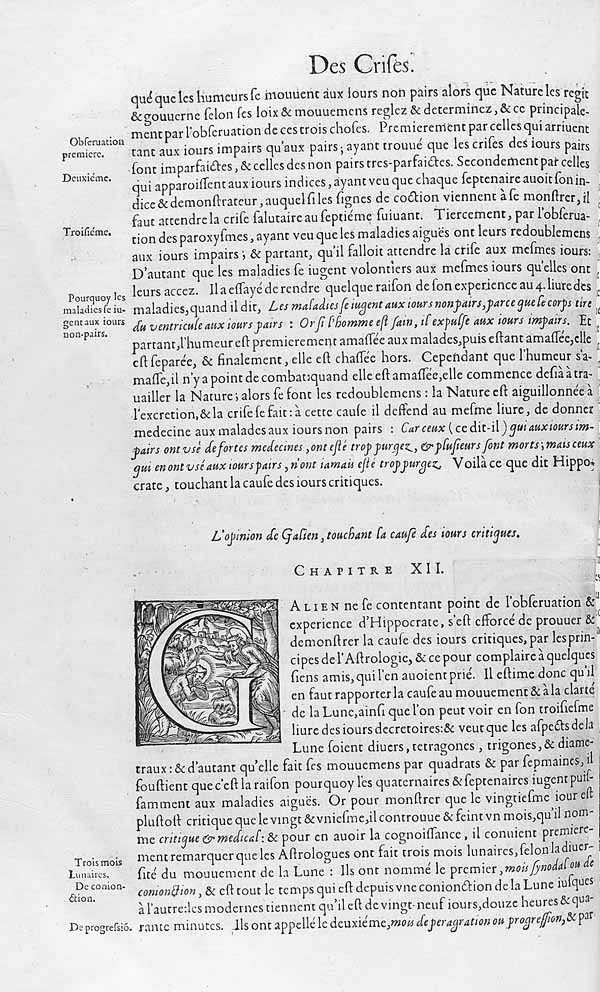 Des Criſes.
qué que les humeurs ſe mouuent aux iours non pairs alors que Nature les regit
& gouuerne ſelon ſes loix & mouuemens reglez & determinez, & ce principale-
ment par l'obſeruation de ces trois choſes. Premierement par celles qui arriuent
Obſeruation
premiere.
tant aux iours impairs qu'aux pairs; ayant trouué que les criſes des iours pairs
ſont imparfaictes, & celles des non pairs tres-parfaictes. Secondement par celles
Deuxiéme.
qui apparoiſſent aux iours indices, ayant veu que chaque ſeptenaire auoit ſon in-
dice & demonſtrateur, auquel ſi les ſignes de coction viennent à ſe monſtrer, il
faut attendre la criſe ſalutaire au ſeptiéme ſuiuant. Tiercement, par l'obſerua-
Troiſiéme.
tion des paroxyſmes, ayant veu que les maladies aiguës ont leurs redoublemens
aux iours impairs; & partant, qu'il falloit attendre la criſe aux meſmes iours:
D'autant que les maladies ſe iugent volontiers aux meſmes iours qu'elles ont
leurs accez. Il a eſſayé de rendre quelque raiſon de ſon experience au 4. liure des
Pourquoy les
maladies ſe iu-
gent aux iours
non-pairs.
maladies, quand il dit, Les maladies ſe iugent aux iours non pairs, parce que le corps tire
du ventricule aux iours pairs : Or ſi l'homme eſt ſain, il expulſe aux iours impairs. Et
partant, l'humeur eſt premierement amaſſée aux malades, puis eſtant amaſſée, elle
eſt ſeparée, & finalement, elle eſt chaſſée hors. Cependant que l'humeur s'a-
maſſe, il n'y a point de combat: quand elle eſt amaſſée, elle commence deſia à tra-
uailler la Nature; alors ſe font les redoublemens : la Nature eſt aiguillonnée à
l'excretion, & la criſe ſe fait : à cette cauſe il deffend au meſme liure, de donner
medecine aux malades aux iours non pairs : Car ceux (ce dit-il) qui aux iours im-
pairs ont vſé de fortes medecines, ont eſté trop purgez, & pluſieurs ſont morts; mais ceux
qui en ont vſé aux iours pairs, n'ont iamais eſté trop purgez. Voilà ce que dit Hippo-
crate, touchant la cauſe des iours critiques.
L'opinion de Galien, touchant la cauſe des iours critiques.
CHAPITRE XII.
GALIEN ne ſe contentant point de l'obſeruation &
experience d'Hippocrate, s'eſt efforcé de prouuer &
demonſtrer la cauſe des iours critiques, par les prin-
cipes de l'Aſtrologie, & ce pour complaire à quelques
ſiens amis, qui l'en auoient prié. Il eſtime donc qu'il
en faut rapporter la cauſe au mouuement & à la clarté
de la Lune, ainſi que l'on peut voir en ſon troiſieſme
liure des iours decretoires: & veut que les aſpects de la
Lune ſoient diuers, tetragones, trigones, & diame-
traux : & d'autant qu'elle fait ſes mouuemens par quadrats & par ſepmaines, il
ſouſtient que c'eſt la raiſon pourquoy les quaternaires & ſeptenaires iugent puiſ-
ſamment aux maladies aiguës. Or pour monſtrer que le vingtieſme iour eſt
pluſtoſt critique que le vingt & vnieſme, il controuue & feint vn mois, qu'il nom-
me critique & medical: & pour en auoir la cognoiſſance, il conuient premiere-
ment remarquer que les Aſtrologues ont fait trois mois lunaires, ſelon la diuer-
Trois mois
Lunaires.
ſité du mouuement de la Lune : Ils ont nommé le premier, mois ſynodal ou de
De conion-
ction.
conionction, & eſt tout le temps qui eſt depuis vne conionction de la Lune iuſques
à l'autre: les modernes tiennent qu'il eſt de vingt-neuf iours, douze heures & qua-
De progreſſió.
rante minutes. Ils ont appellé le deuxiéme, mois de peragration ou progreſſion, & par